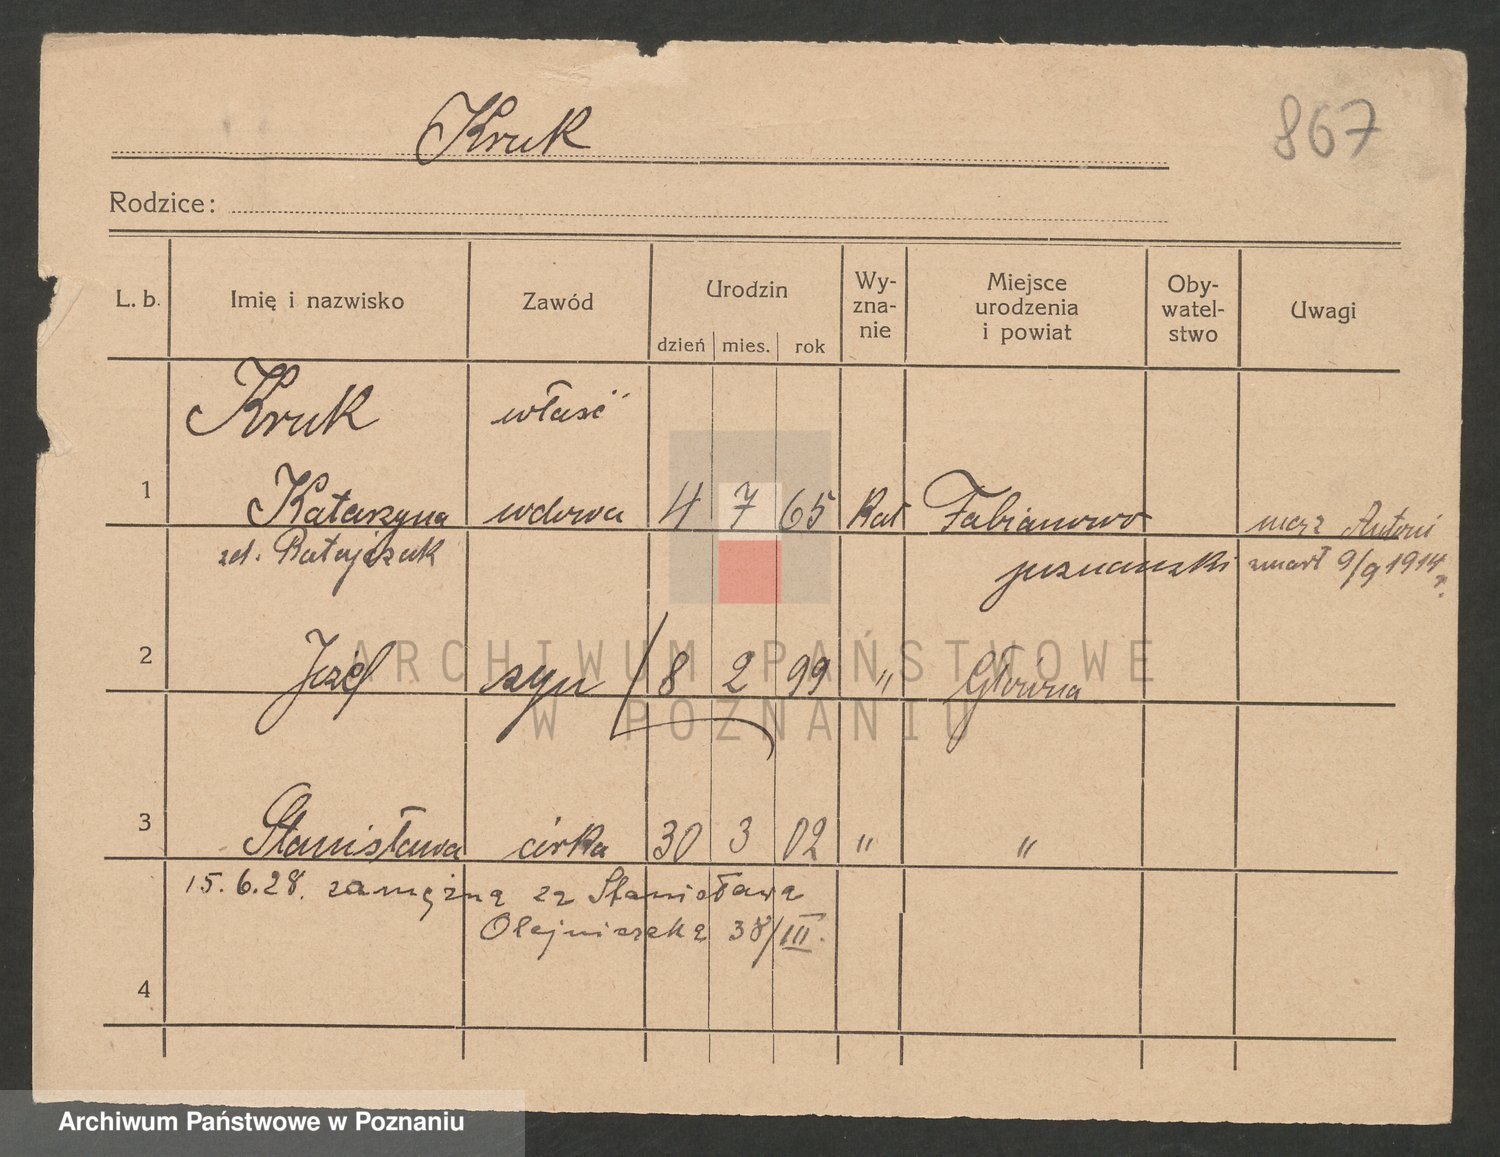 Kruk
867
Rodzice:
L. b. Imię i nazwisko Zawód Urodzin dzień mies. rok Wy- zna- nie Miejsce urodzenia i powiat Oby- watel- stwo Uwagi
Kruk właść
1 Katarzyna wdowa 4 7 65 Kat Fabianowo mąż Antoni
zd. Ratajczak poznański zmarł 9/9 1914 r.
2 Józef syn 8 2 99 " Główna
3 Stanisława córka 30 3 02 " "
15.6.28. zamężna za Stanisława
Olejniczaka 38/III.
4
ARCHIWUM PAŃSTWOWE
W POZNANIU
Archiwum Państwowe w Poznaniu